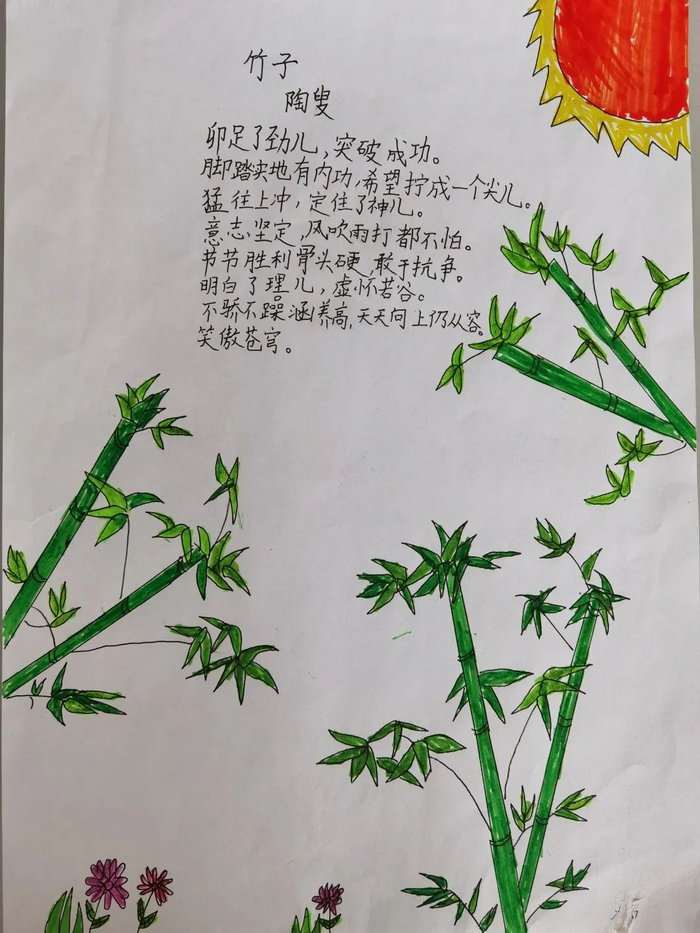 竹子
陶叟
卯足了劲儿,突破成功。
脚踏实地有内功,希望拧成一个尖儿。
猛往上冲,定住了神儿。
意志坚定,风吹雨打都不怕。
节节胜利骨头硬,敢于抗争。
明白了理儿,虚怀若谷。
不骄不躁涵养高,天天向上仍从容。
笑傲苍穹。